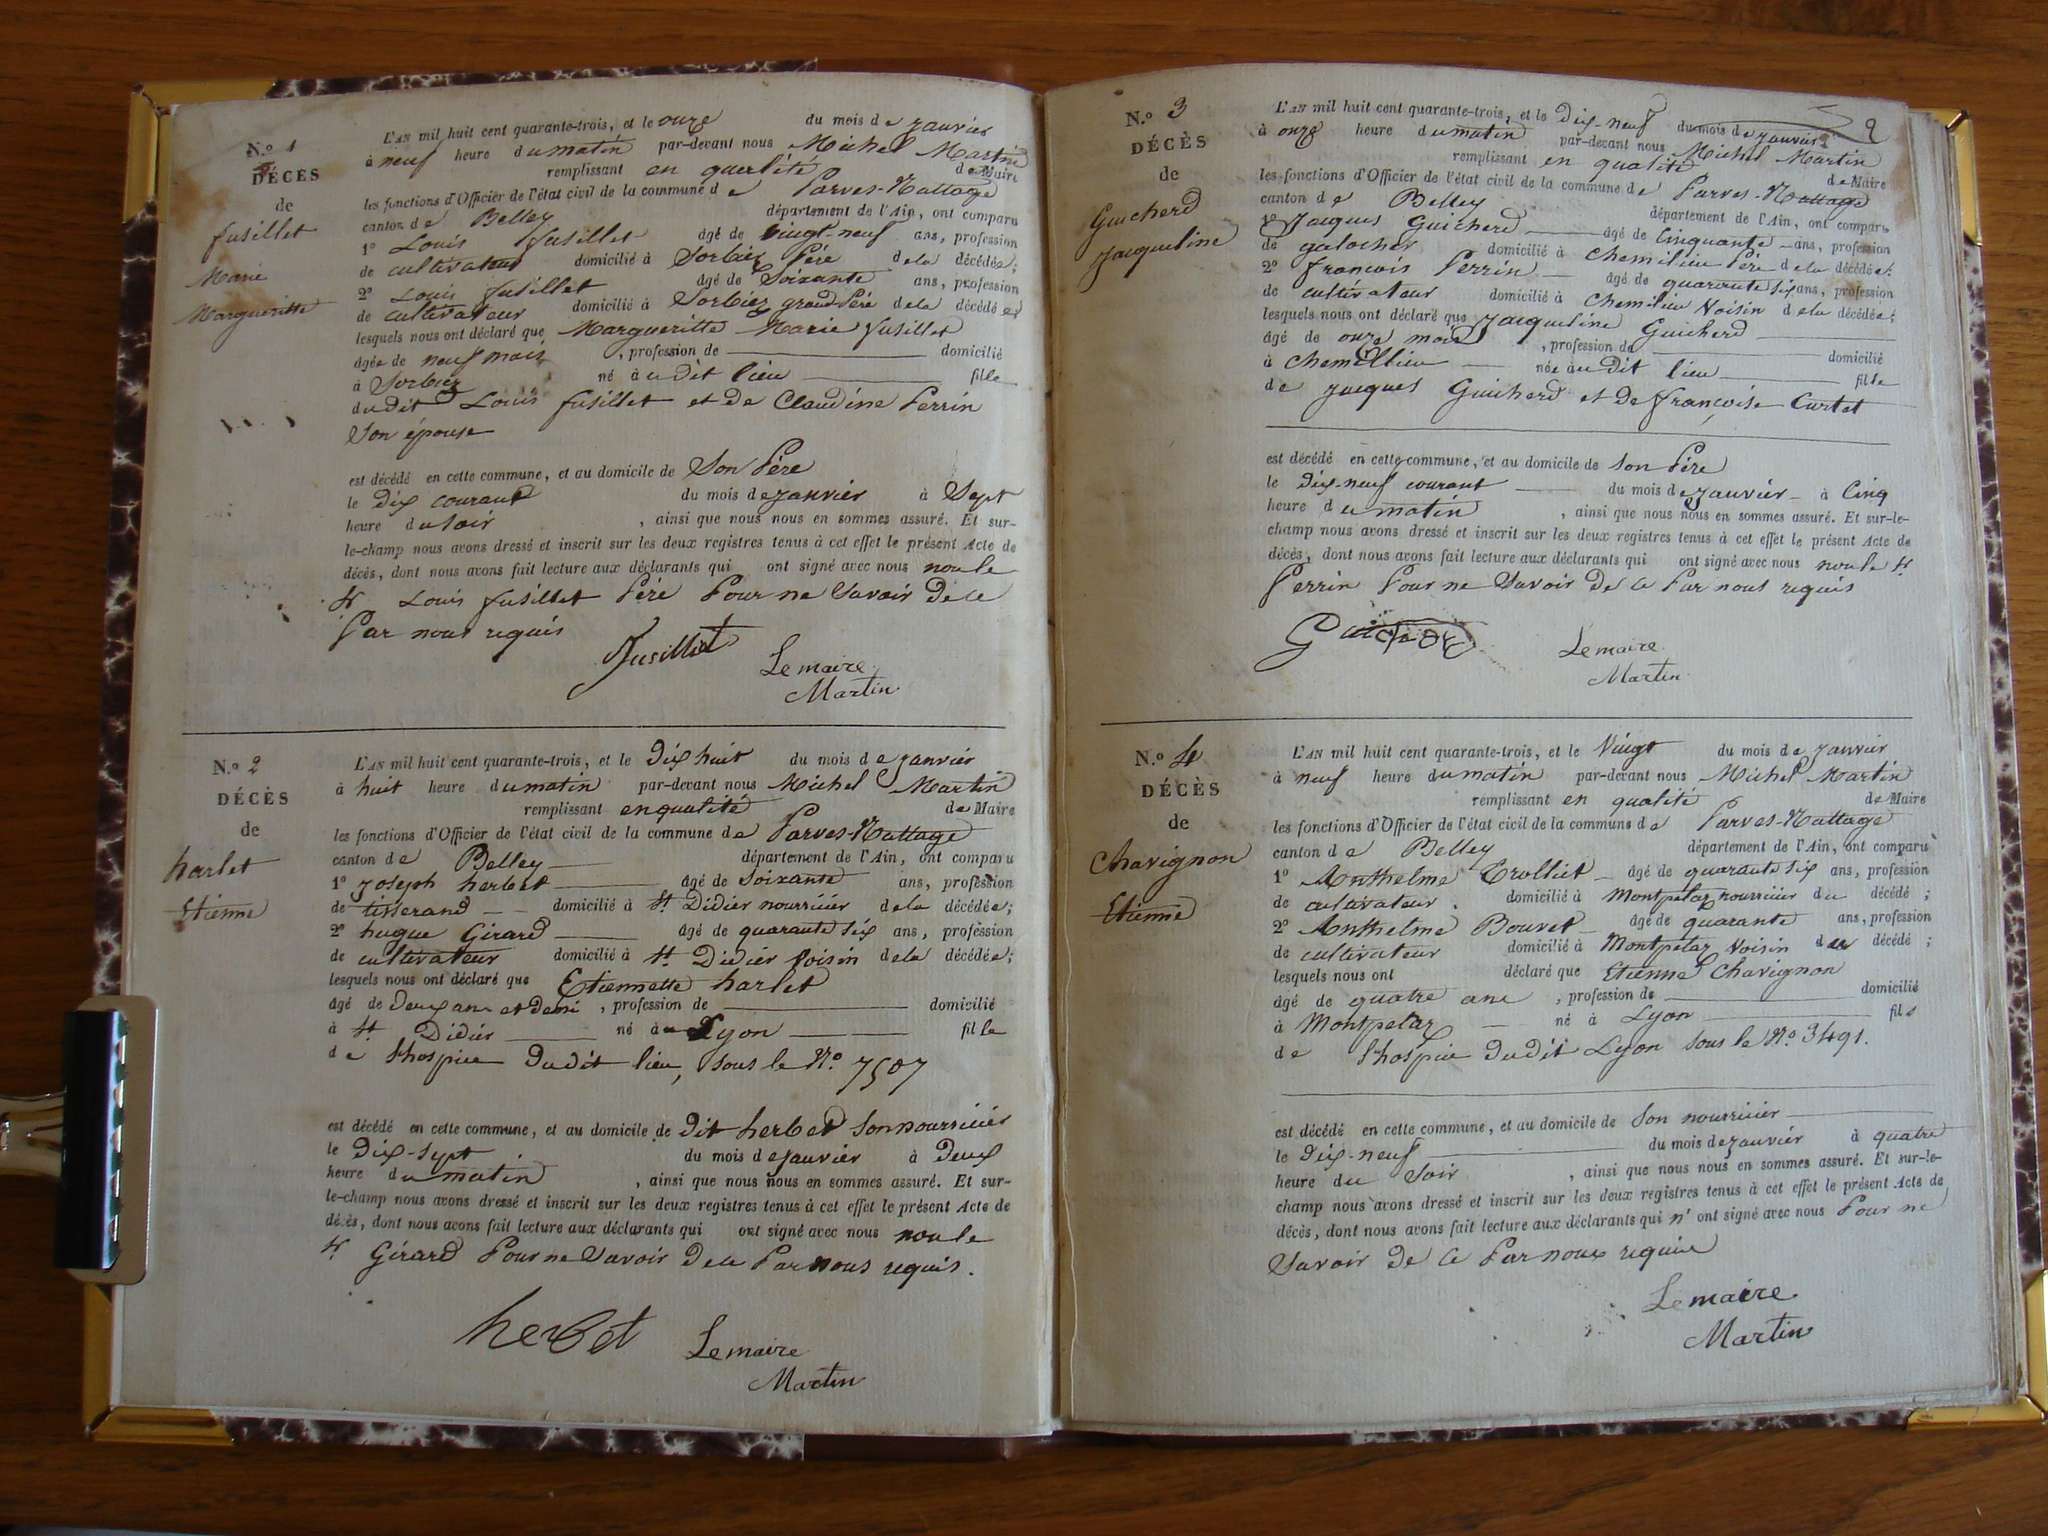 N.º 1
DÉCÈS
de
fusillet
Marie
Margueritte
L'AN mil huit cent quarante-trois, et le onze du mois de janvier
à neuf heure du matin par-devant nous Michel Martin
remplissant en qualité de Maire
les fonctions d'Officier de l'état civil de la commune de Parves-Nattage
canton de Belley département de l'Ain, ont comparu
1º Louis fusillet âgé de vingt-neuf ans, profession
de cultivateur domicilié à Sorbiez Père de la décédée;
2º Louis fusillet âgé de Soixante ans, profession
de cultivateur domicilié à Sorbiez grand Père de la décédée;
lesquels nous ont déclaré que Margueritte Marie fusillet
âgée de neuf mois, profession de domicilié
à Sorbiez né à u dit lieu fille
du dit Louis fusillet et de Claudine Perrin
Son épouse
est décédé en cette commune, et au domicile de Son Père
le dix courant du mois de janvier à Sept
heure du soir, ainsi que nous nous en sommes assuré. Et sur-
le-champ nous avons dressé et inscrit sur les deux registres tenus à cet effet le présent Acte de
décès, dont nous avons fait lecture aux déclarants qui ont signé avec nous non le
Sr Louis fusillet Père Pour ne Savoir de ce
Par nous requis
fusillet
Le maire
Martin
N.º 2
DÉCÈS
de
harlet
Etienne
L'AN mil huit cent quarante-trois, et le Dix huit du mois de janvier
à huit heure du matin par-devant nous Michel Martin
remplissant en qualité de Maire
les fonctions d'Officier de l'état civil de la commune de Parves-Nattage
canton de Belley département de l'Ain, ont comparu
1º joseph herbet âgé de Soixante ans, profession
de tisserand domicilié à St Didier nourricier de la décédée;
2º hugue Girard âgé de quarante six ans, profession
de cultivateur domicilié à St Didier Voisin de la décédée;
lesquels nous ont déclaré que Etiennette harlet
âgé de Deux ans et demi, profession de domicilié
à St Didier né à Lyon fille
de l'hospice du dit lieu, sous le No. 7507
est décédé en cette commune, et au domicile de dit herbet son nourricier
le Dix-Sept du mois de janvier à Deux
heure du matin, ainsi que nous nous en sommes assuré. Et sur-
le-champ nous avons dressé et inscrit sur les deux registres tenus à cet effet le présent Acte de
décès, dont nous avons fait lecture aux déclarants qui ont signé avec nous non le
Sr Girard Pour ne Savoir de ce Par nous requis.
herbet
Le maire
Martin
2
N.º 3
DÉCÈS
de
Guicherd
Jacqueline
L'AN mil huit cent quarante-trois, et le Dix-neuf du mois de janvier
à onze heure du matin par-devant nous Michel Martin
remplissant en qualité de Maire
les fonctions d'Officier de l'état civil de la commune de Parves-Nattage
canton de Belley département de l'Ain, ont comparu
1º Jacques Guicherd âgé de Cinquante ans, profession
de galocher domicilié à Chemilieu Père de la décédée;
2º françois Perrin âgé de quarante six ans, profession
de cultivateur domicilié à Chemilieu Voisin de la décédée;
lesquels nous ont déclaré que Jacqueline Guicherd
âgé de onze mois, profession de domicilié
à Chemillieu née au dit lieu fille
de jacques Guicherd et de françoise Curtet
est décédé en cette commune, et au domicile de son Père
le dix-neuf courant du mois de janvier à Cinq
heure du matin, ainsi que nous nous en sommes assuré. Et sur-le-
champ nous avons dressé et inscrit sur les deux registres tenus à cet effet le présent Acte de
décès, dont nous avons fait lecture aux déclarants qui ont signé avec nous non le Sr
Perrin Pour ne Savoir de ce Par nous requis
Le maire
Martin
N.º 4
DÉCÈS
de
Chavignon
Etienne
L'AN mil huit cent quarante-trois, et le Vingt du mois de janvier
à neuf heure du matin par-devant nous Michel Martin
remplissant en qualité de Maire
les fonctions d'Officier de l'état civil de la commune de Parves-Nattage
canton de Belley département de l'Ain, ont comparu
1º Anthelme Trolliet âgé de quarante six ans, profession
de cultivateur domicilié à Montpelaz nourricier du décédé;
2º Anthelme Bouvet âgé de quarante ans, profession
de cultivateur domicilié à Montpelaz Voisin du décédé;
lesquels nous ont déclaré que Etienne Chavignon
âgé de quatre ans, profession de domicilié
à Montpelaz né à Lyon fils
de l'hospice du dit Lyon sous le No. 3491.
est décédé en cette commune, et au domicile de Son nourricier
le Dix-neuf du mois de janvier à quatre
heure du Soir, ainsi que nous nous en sommes assuré. Et sur-le-
champ nous avons dressé et inscrit sur les deux registres tenus à cet effet le présent Acte de
décès, dont nous avons fait lecture aux déclarants qui n'ont signé avec nous Pour ne
Savoir de ce Par nous requis
Le maire
Martin